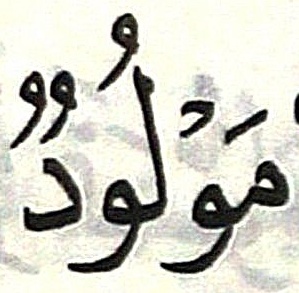 مَوْلُودٌ